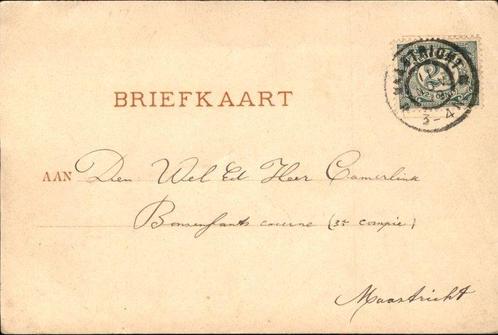 MAASTRICHT
2½
3-4N
BRIEFKAART
AAN Den Wel Ed Heer Camerlink
Bonsenfants caserne (3e compie)
Maastricht